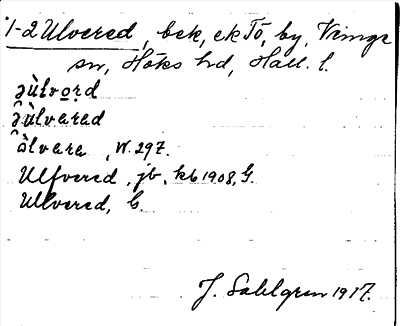 1-2 Ulvered, bek, ek Tö, by, Vinge
sn, Höks hd, Hall. l.
ə̂ùlvo̱ṛd
ə̂ùlvarad
âlvara, W. 297.
Ulfvered, jb, kb 1908, G.
Ullvered, G.
J. Sahlgren 1917.